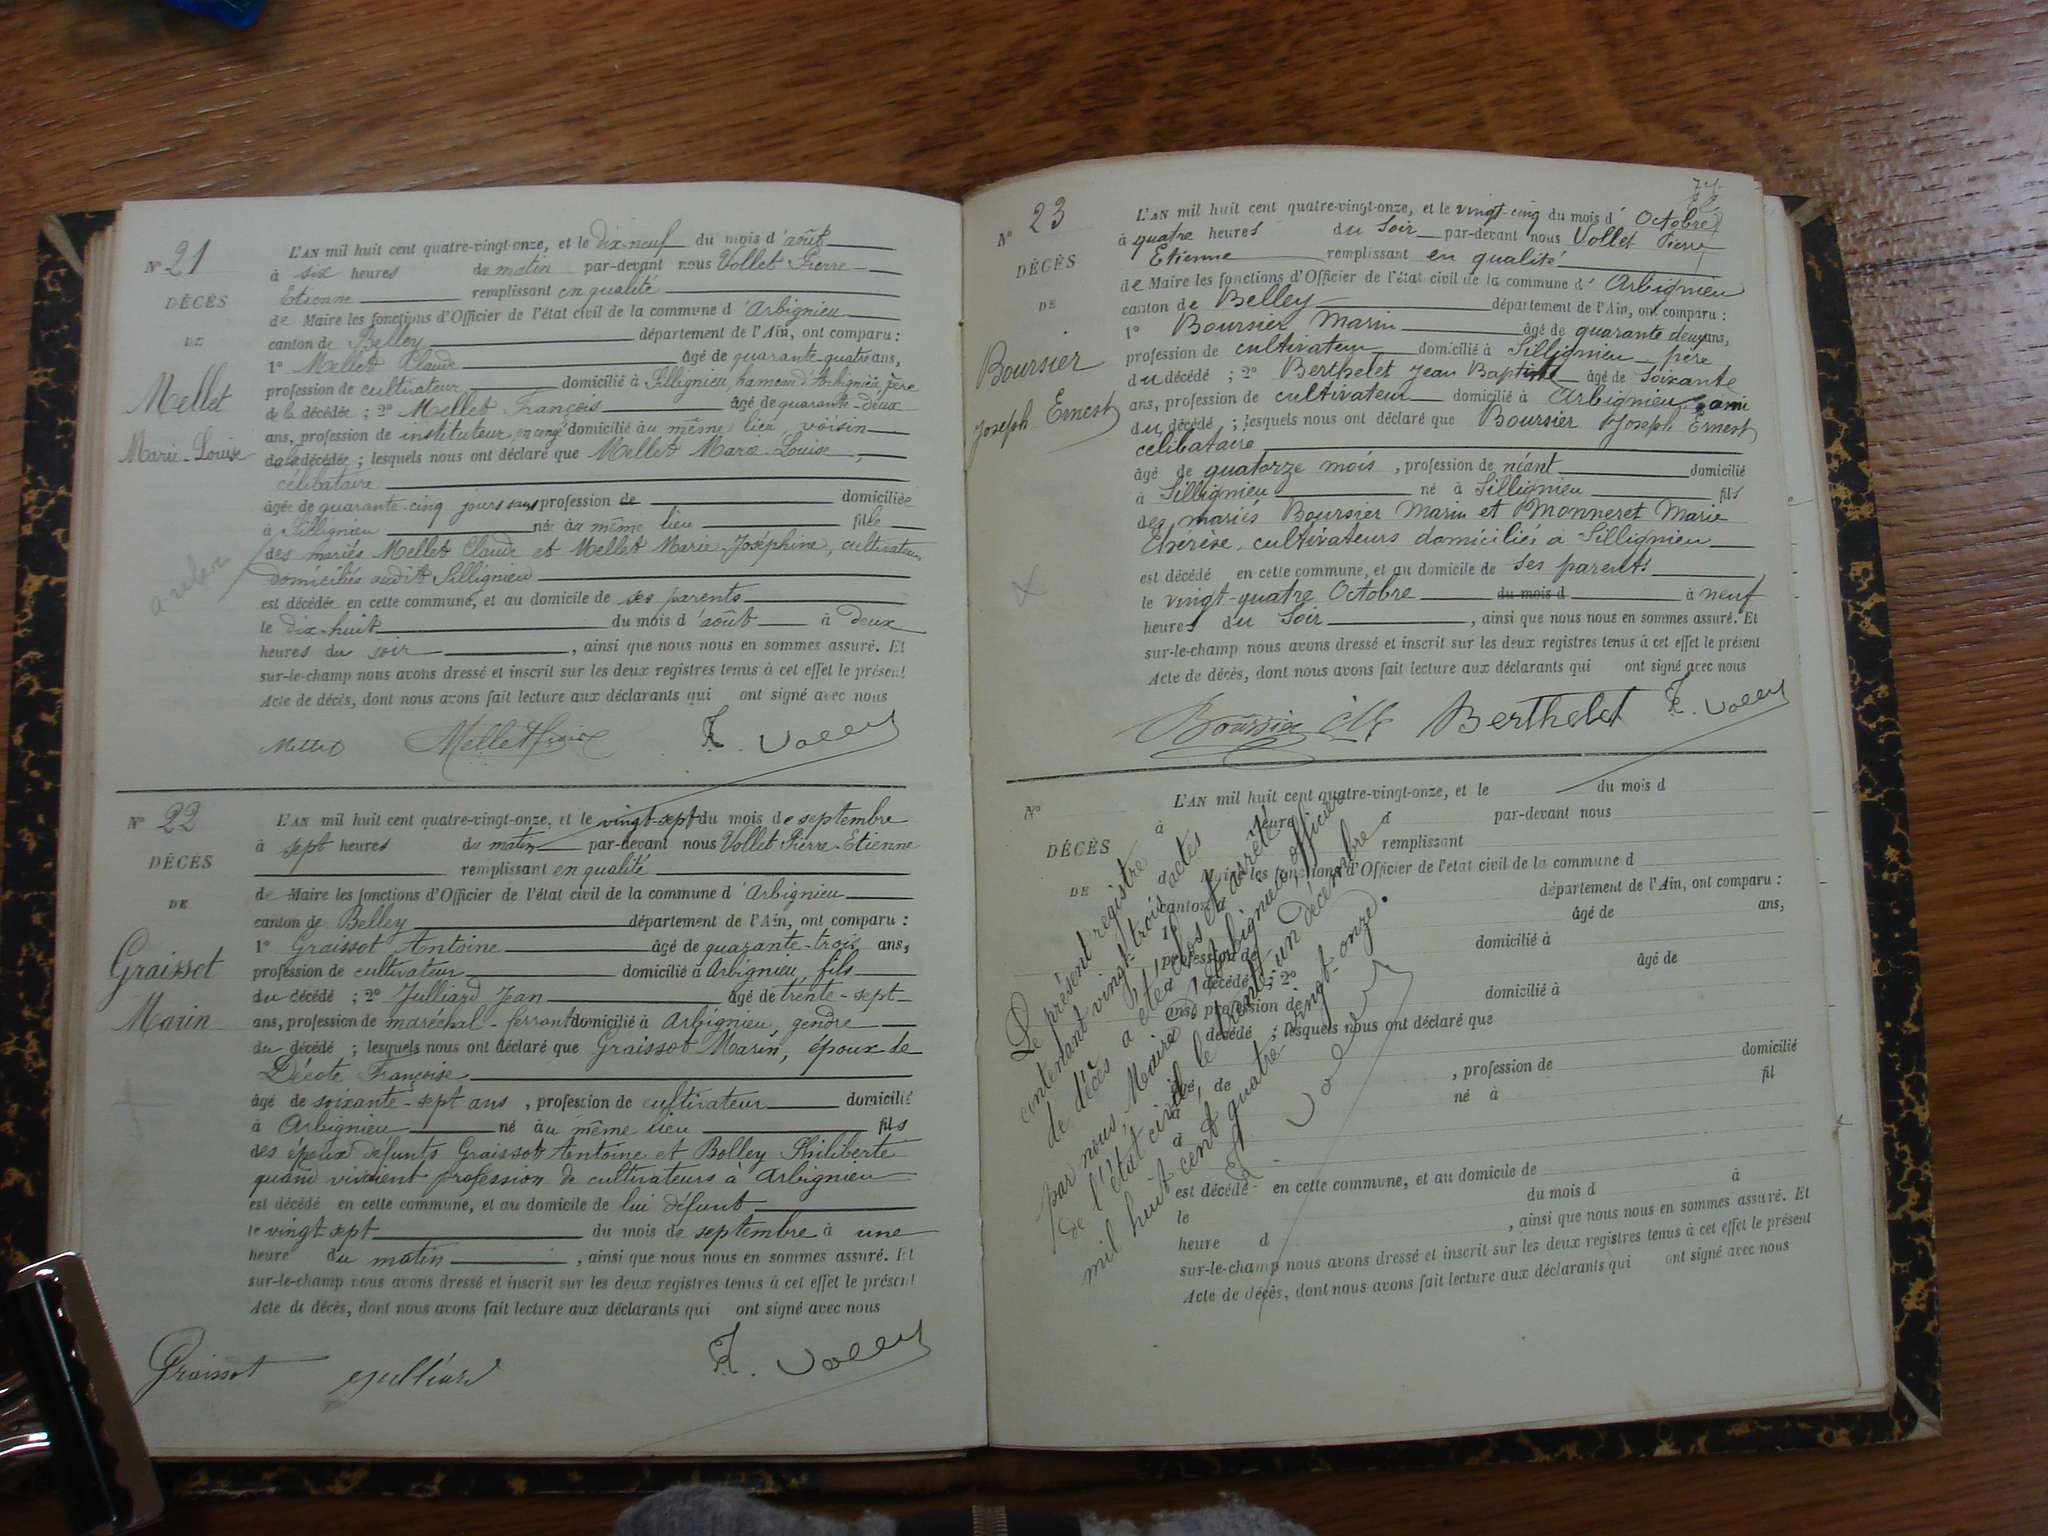 N° 21
DÉCÈS
DE
Mellet
Marie-Louise
L'AN mil huit cent quatre-vingt-onze, et le dix-neuf du mois d'août
à six heures du matin par-devant nous Vollet Pierre
Etienne remplissant en qualité
de Maire les fonctions d'Officier de l'état civil de la commune d'Arbignieu
canton de Belley département de l'Ain, ont comparu :
1° Mellet Claude âgé de quarante-quatre ans,
profession de cultivateur domicilié à Sillignieu hameau d'Arbignieu, père
de la décédée ; 2° Mellet François âgé de quarante-deux
ans, profession de instituteur en congé domicilié au même lieu, voisin
de la décédée ; lesquels nous ont déclaré que Mellet Marie-Louise,
célibataire
âgée de quarante-cinq jours sans profession de domiciliée
à Sillignieu née au même lieu fille
des mariés Mellet Claude et Mellet Marie-Joséphine, cultivateurs
domiciliés audit Sillignieu
est décédée en cette commune, et au domicile de ses parents
le dix-huit du mois d'août à deux
heures du soir, ainsi que nous nous en sommes assuré. Et
sur-le-champ nous avons dressé et inscrit sur les deux registres tenus à cet effet le présent
Acte de décès, dont nous avons fait lecture aux déclarants qui ont signé avec nous
Mellet Mellet E. Vollet
N° 22
DÉCÈS
DE
Graissot
Marin
L'AN mil huit cent quatre-vingt-onze, et le vingt-sept du mois de septembre
à sept heures du matin par-devant nous Vollet Pierre-Etienne
remplissant en qualité
de Maire les fonctions d'Officier de l'état civil de la commune d'Arbignieu
canton de Belley département de l'Ain, ont comparu :
1° Graissot Antoine âgé de quarante-trois ans,
profession de cultivateur domicilié à Arbignieu, fils
du décédé ; 2° Julliard Jean âgé de trente-sept
ans, profession de maréchal-ferrant domicilié à Arbignieu, gendre
du décédé ; lesquels nous ont déclaré que Graissot Marin, époux de
Décote Françoise
âgé de soixante-sept ans, profession de cultivateur domicilié
à Arbignieu né au même lieu fils
des époux défunts Graissot Antoine et Bolley Philiberte
quand vivaient profession de cultivateurs à Arbignieu
est décédé en cette commune, et au domicile de lui défunt
le vingt sept du mois de septembre à une
heure du matin, ainsi que nous nous en sommes assuré. Et
sur-le-champ nous avons dressé et inscrit sur les deux registres tenus à cet effet le présent
Acte de décès, dont nous avons fait lecture aux déclarants qui ont signé avec nous
Graissot Julliard E. Vollet
N° 23
DÉCÈS
DE
Boursier
Joseph Ernest
L'AN mil huit cent quatre-vingt-onze, et le vingt-cinq du mois d'Octobre
à quatre heures du soir par-devant nous Vollet Pierre
Etienne remplissant en qualité
de Maire les fonctions d'Officier de l'état civil de la commune d'Arbignieu
canton de Belley département de l'Ain, ont comparu :
1° Boursier Marin âgé de quarante deux ans,
profession de cultivateur domicilié à Sillignieu père
du décédé ; 2° Berthelet Jean Baptiste âgé de soixante
ans, profession de cultivateur domicilié à Arbignieu ami
du décédé ; lesquels nous ont déclaré que Boursier Joseph Ernest
célibataire
âgé de quatorze mois, profession de néant domicilié
à Sillignieu né à Sillignieu fils
des mariés Boursier Marin et Monneret Marie
Thérèse, cultivateurs domiciliés à Sillignieu
est décédé en cette commune, et au domicile de ses parents
le vingt-quatre Octobre du mois d à neuf
heures du Soir, ainsi que nous nous en sommes assuré. Et
sur-le-champ nous avons dressé et inscrit sur les deux registres tenus à cet effet le présent
Acte de décès, dont nous avons fait lecture aux déclarants qui ont signé avec nous
Boursier Berthelet E. Vollet
N°
DÉCÈS
DE
L'AN mil huit cent quatre-vingt-onze, et le du mois d
à heure d par-devant nous
remplissant
d Maire les fonctions d'Officier de l'état civil de la commune d
canton d département de l'Ain, ont comparu :
1° âgé de ans,
profession de domicilié à
décédé ; 2° âgé de
ans, profession de domicilié à
décédé ; lesquels nous ont déclaré que
âgé de , profession de domicilié
à né à fil
d
est décédé en cette commune, et au domicile de
le du mois d à
heure d , ainsi que nous nous en sommes assuré. Et
sur-le-champ nous avons dressé et inscrit sur les deux registres tenus à cet effet le présent
Acte de décès, dont nous avons fait lecture aux déclarants qui ont signé avec nous
Le présent registre
contenant vingt-trois actes
de décès a été clos et arrêté
par nous, Maire d'Arbignieu, officier
de l'état civil, le trente un décembre
mil huit cent quatre-vingt-onze.
E. Vollet